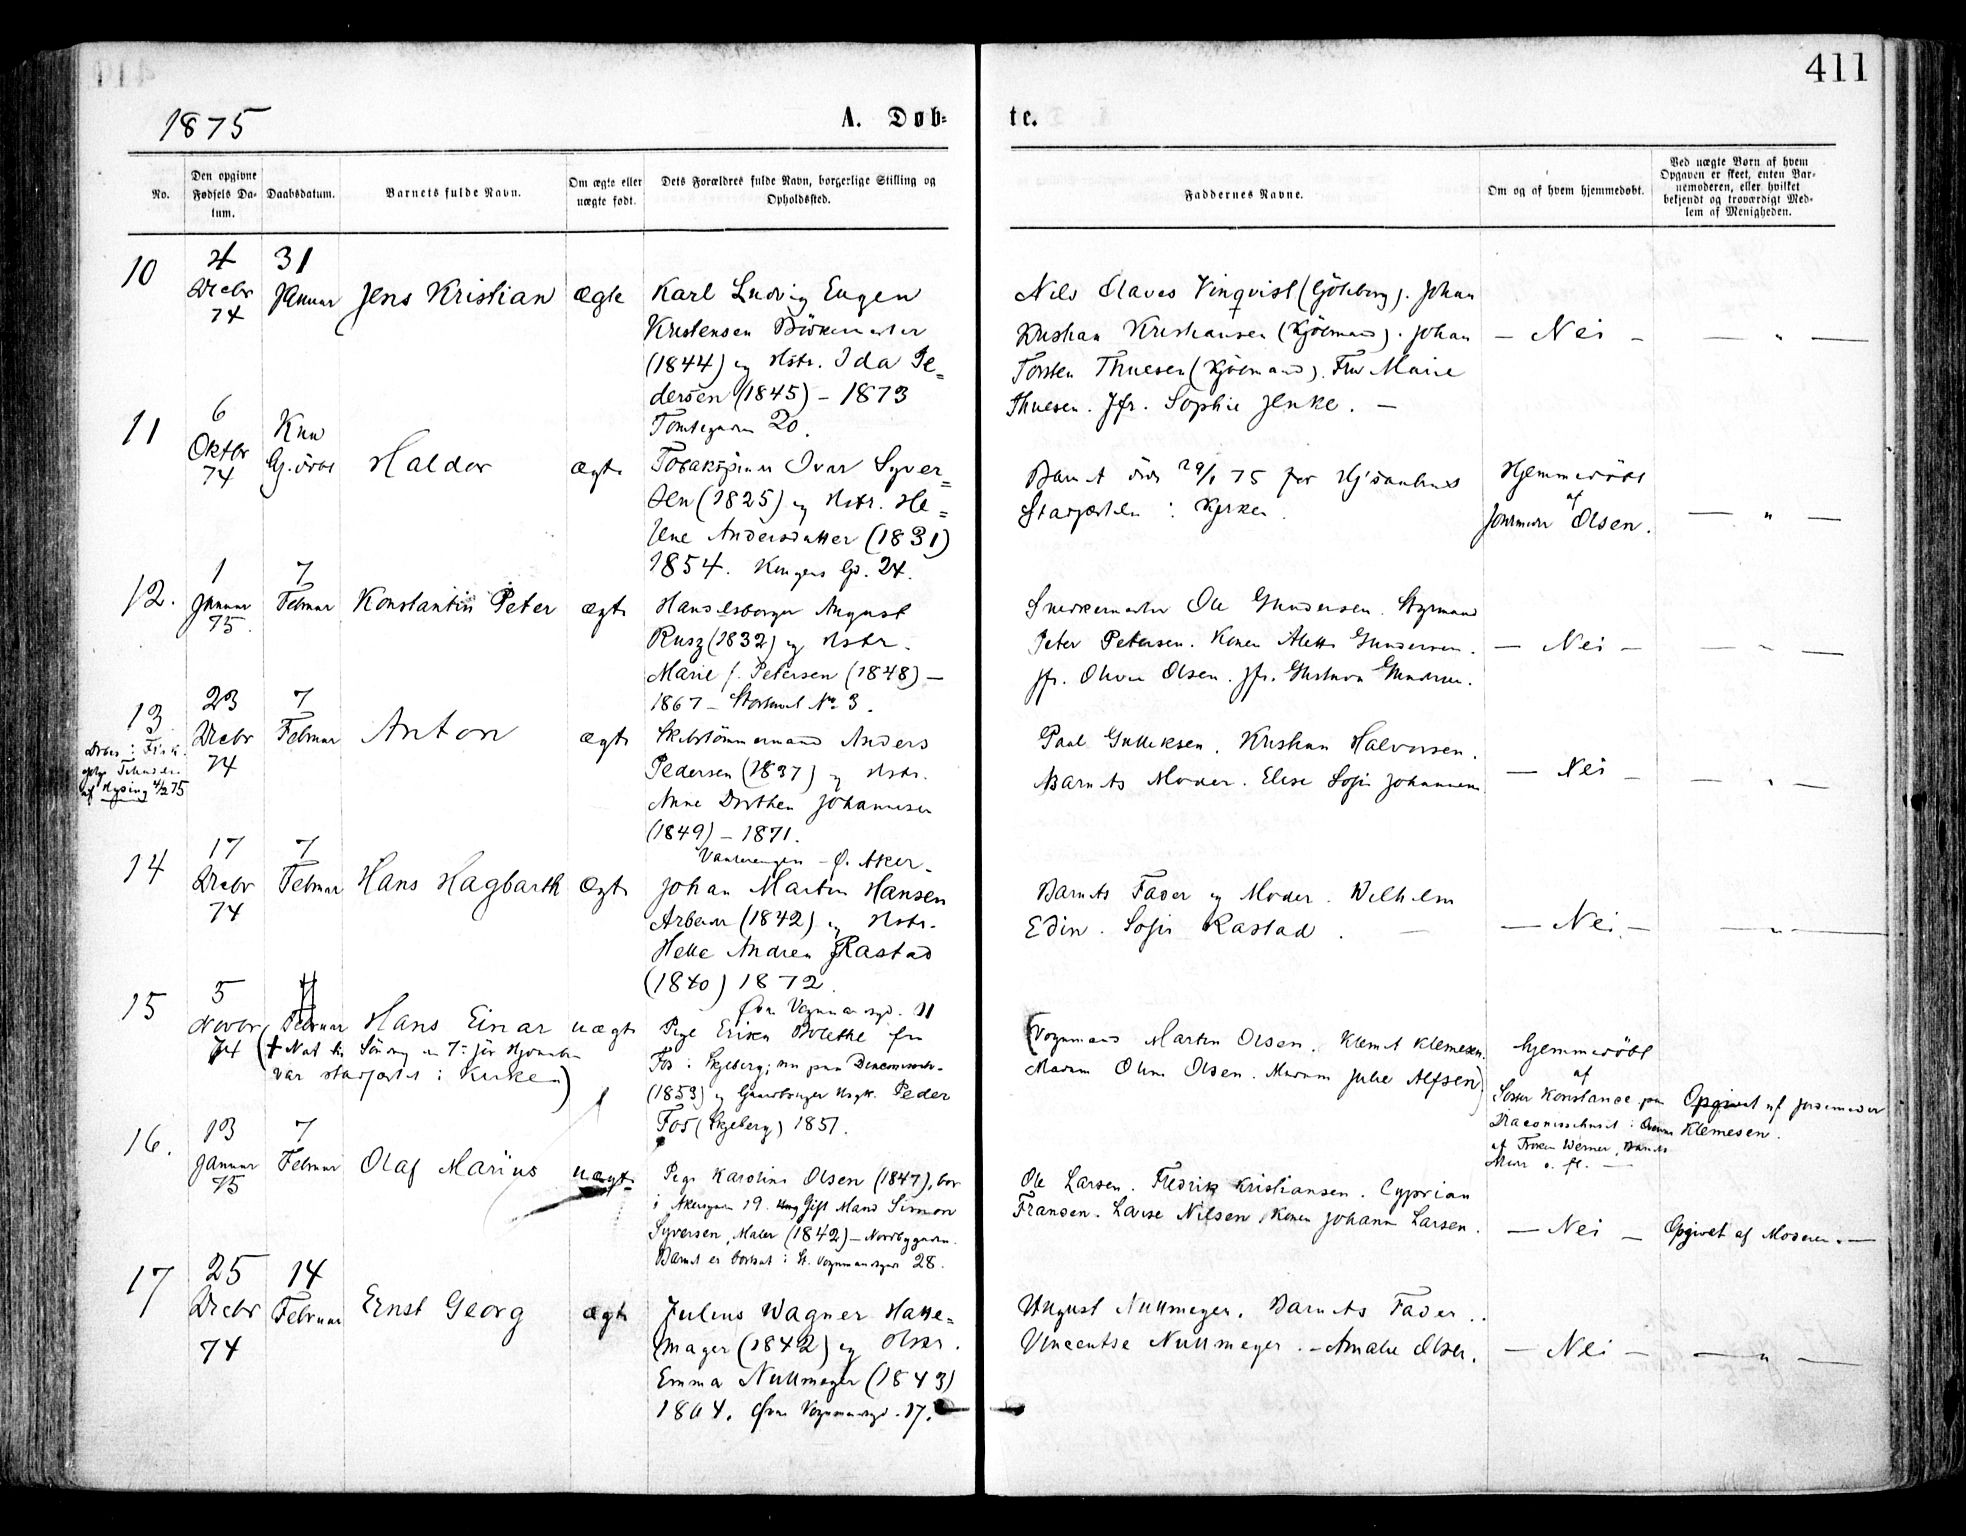 411
1875
A. Døb-
te.
No.
Den opgivne Fødsels Da-
tum.
Daabsdatum.
Barnets fulde Navn.
Om ægte eller
uægte født.
Dets Forældres fulde Navn, borgerlige Stilling og
Opholdssted.
Faddernes Navne.
Om og af hvem hjemmedøbt.
Ved uægte Børn af hvem
Opgaven er skeet, enten Bar-
nemoderen, eller hvilket
bekjendt og troværdigt Med-
lem af Menigheden.
10
4
Decbr
74
31
Januar
Jens Kristian
ægte
Karl Ludvig Eugen
Kristensen
(1844) og Hstr. Ida Pe-
dersen (1845) – 1873
Tomtegaden 20.
Nils Olaves Vinqvist (Göteborg). Johan
Kristian Kristiansen (Kjöbmand). Johan
Torsten Thuesen (Kjöbmand). Fru Marie
Thuesen. Jfr. Sophie Jenke. –
– Nei –
— " —
11
6
Oktbr
74
Kun
Hj.döbt
Haldor
ægte
Tobakspinner Ivar Syver-
sen (1825) og Hstr. He-
lene Andersdatter (1831)
1854. Kongens Gd. 24.
Barnet död 29/1 75 för Hj.daaben
Stadfæstet i Kirken.
Hjemmedöbt
af
Jordmoder Olsen.
— " —
12.
1
Januar
75.
7
Februar
Konstantin Peter
ægte
Handelsborger August
Rusz (1832) og Hstr.
Marie f. Petersen (1848) –
1867 – Stortorvet No 3.
Snedkermester Ole Gundersen. Styrmand
Peter Petersen. Konen Alette Gundersen.
Jfr. Olivia Olsen. Jfr. Gustava Gundersen.
– Nei –
— " —
13
af Hysing 4/2 75
23
Decbr
74
7
Februar
Anton
ægte
Skibstömmermand Anders
Pedersen (1837) og Hstr.
Anne Dorthea Johannesen
(1849) – 1871.
Vaalerengen – Ö. Aker.
Paul Gulliksen. Kristian Halvorsen.
Barnets Moder. Elise Sofie Johannesen
– Nei –
— " —
14
17
Decbr
74
7
Februar
Hans Hagbarth
ægte
Johan Martin Hansen
Arbeider (1842) og Hstr.
Helle Andrea Rastad
(1840) 1872.
Övre Vognmandsgd. 11
Barnets Fader og Moder. Wilhelm
Edin. Sofie Rastad. –
— Nei. —
— " —
15
5
Novbr
74
7
Februar
Hans Einar
uægte
(† Nat til Söndag den 7de för Hj.daaben
var stadfæstet i Kirken)
Pige Erika Bolethe fra
Fos i Skjeberg; nu paa Diaconissehs.
(1853) og Gaardbruger Ungk. Peder
Fos (Skjeberg) 1851.
(Vognmand Martin Olsen. Klemet Klemesen.
Madam Oline Olsen. Madam Julie Alfsen)
Hjemmedöbt
af
Söster Konstance paa
Diaconissehuset i Overvær
af Fröken Werner, Barnets
Moder o. fl. —
Opgivet af Jordemoder
Klemesen.
16.
13
Januar
75
7
Februar
Olaf Marius
uægte
Pige Karoline Olsen (1847), bor
i Akersgaden 19. Ung Gift Mand Simon
Syversen, Maler (1842) – Nordbygaden.
Barnet er bortsat i St. Vognmandsgade 28.
Ole Larsen. Fredrik Kristiansen. Cyprian
Fransen. Lovise Nilsen. Konen Johanne Larsen.
– Nei –
Opgivet af Moderen. –
17
25
Decbr
74
14
Februar
Ernst Georg
ægte
Julius Wagner Hatte-
mager (1842) og Hstr.
Emma Nullmeyer (1843)
1864. Övre Vognmandsgd. 17.
August Nullmeyer. Barnets Fader.
Vincentse Nullmeyer. – Amalie Olsen.
– Nei –
— " —